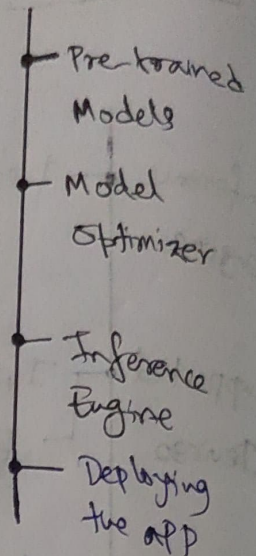 Pre-trained
Models
Model
Optimizer
Inference
Engine
Deploying
the app